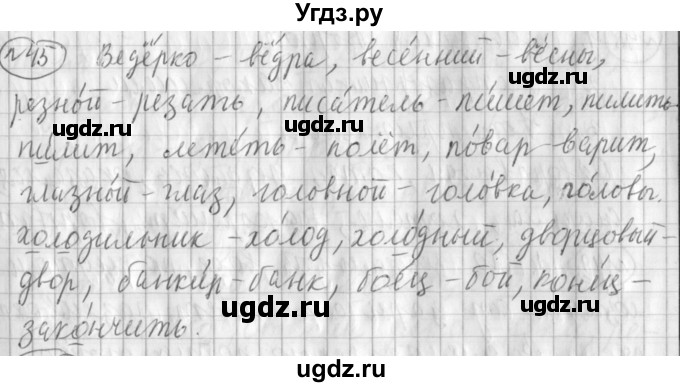 Угдз.ру
№45 Ведёрко – вёдра, весе́нний – вёсны,
резно́й – ре́зать, писа́тель – пи́шет, пилить –
пилит, лете́ть – полёт, по́вар – варит,
глазно́й – глаз, головной – голо́вка, го́ловы.
холодильник – хо́лод, холо́дный, дворцовый –
двор, банки́р – банк, бое́ц – бой, коне́ц –
зако́нчить.
ugdz.ru
ugdz.ru
ugdz.ru
ugdz.ru
ugdz.ru
ugdz.ru
ugdz.ru
ugdz.ru
ugdz.ru
ugdz.ru